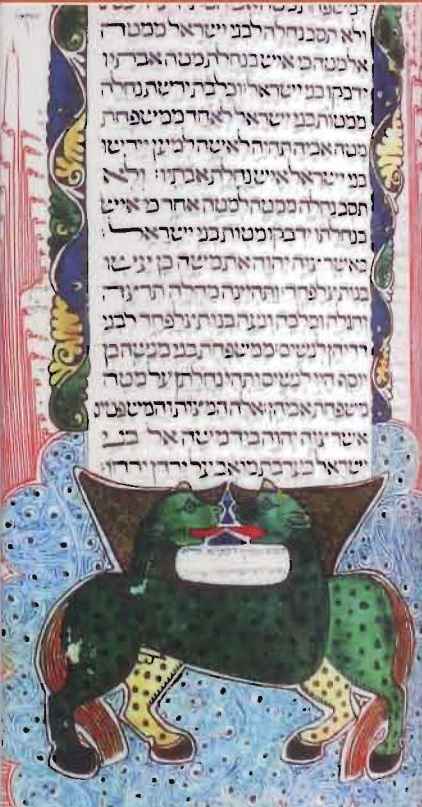 ולא תסב נחלה לבני ישראל ממטה
אל מטה כי איש בנחלת מטה אבתיו
ידבקו בני ישראל וכל בת ירשת נחלה
ממטות בני ישראל לאחד ממשפחת
מטה אביה תהיה לאשה למען יירשו
בני ישראל איש נחלת אבתיו ולא
תסב נחלה ממטה למטה אחר כי איש
בנחלתו ידבקו מטות בני ישראל
כאשר צוה יהוה את משה כן עשו
בנות צלפחד ותהיינה מחלה תרצה
וחגלה ומלכה ונעה בנות צלפחד לבני
דדיהן לנשים ממשפחת בני מנשה בן
יוסף היו לנשים ותהי נחלתן על מטה
משפחת אביהן אלה המצות והמשפטים
אשר צוה יהוה ביד משה אל בני
ישראל בערבת מואב על ירדן ירחו